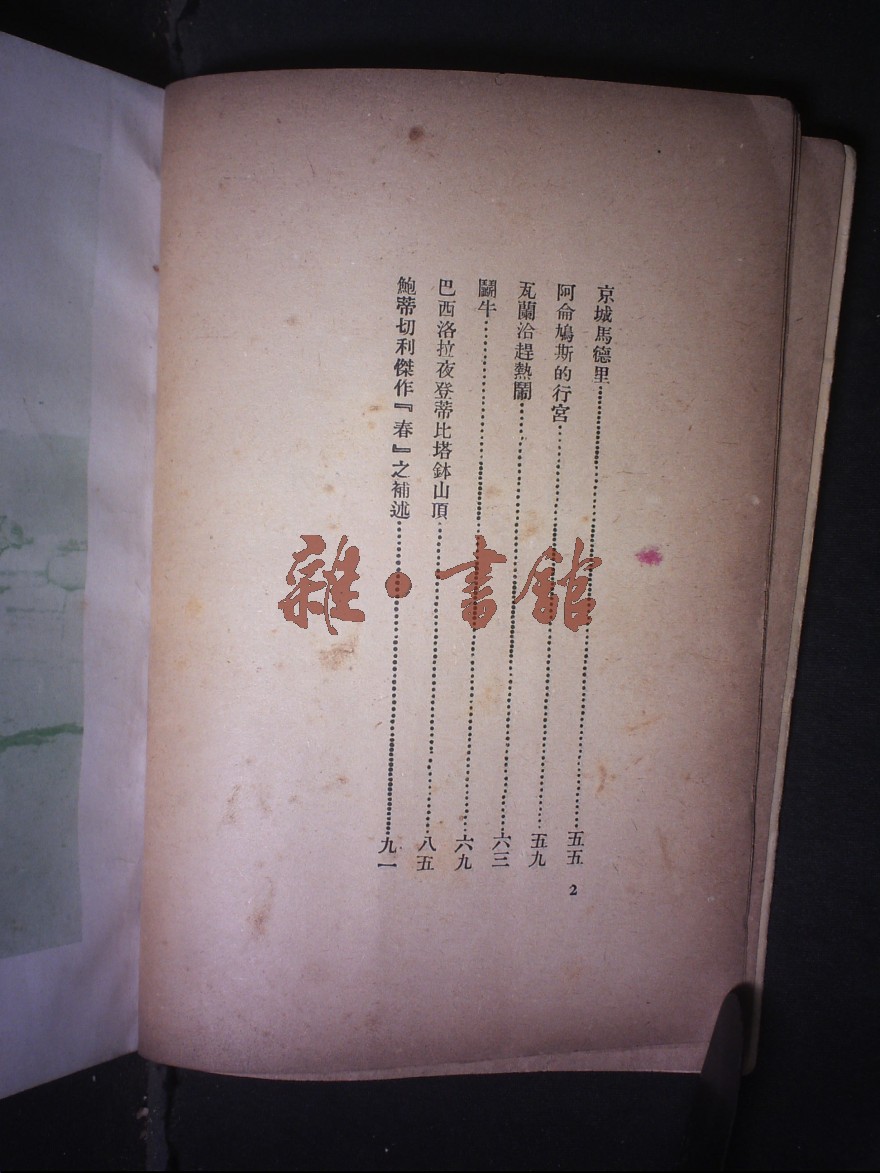 京城馬德里……五五
阿侖鳩斯的行宮……五九
瓦蘭洽趕熱鬧……六三
鬭牛……六九
巴西洛拉夜登蒂比塔鉢山頂……八五
鮑蒂切利傑作『春』之補述……九一
2
雜·書館